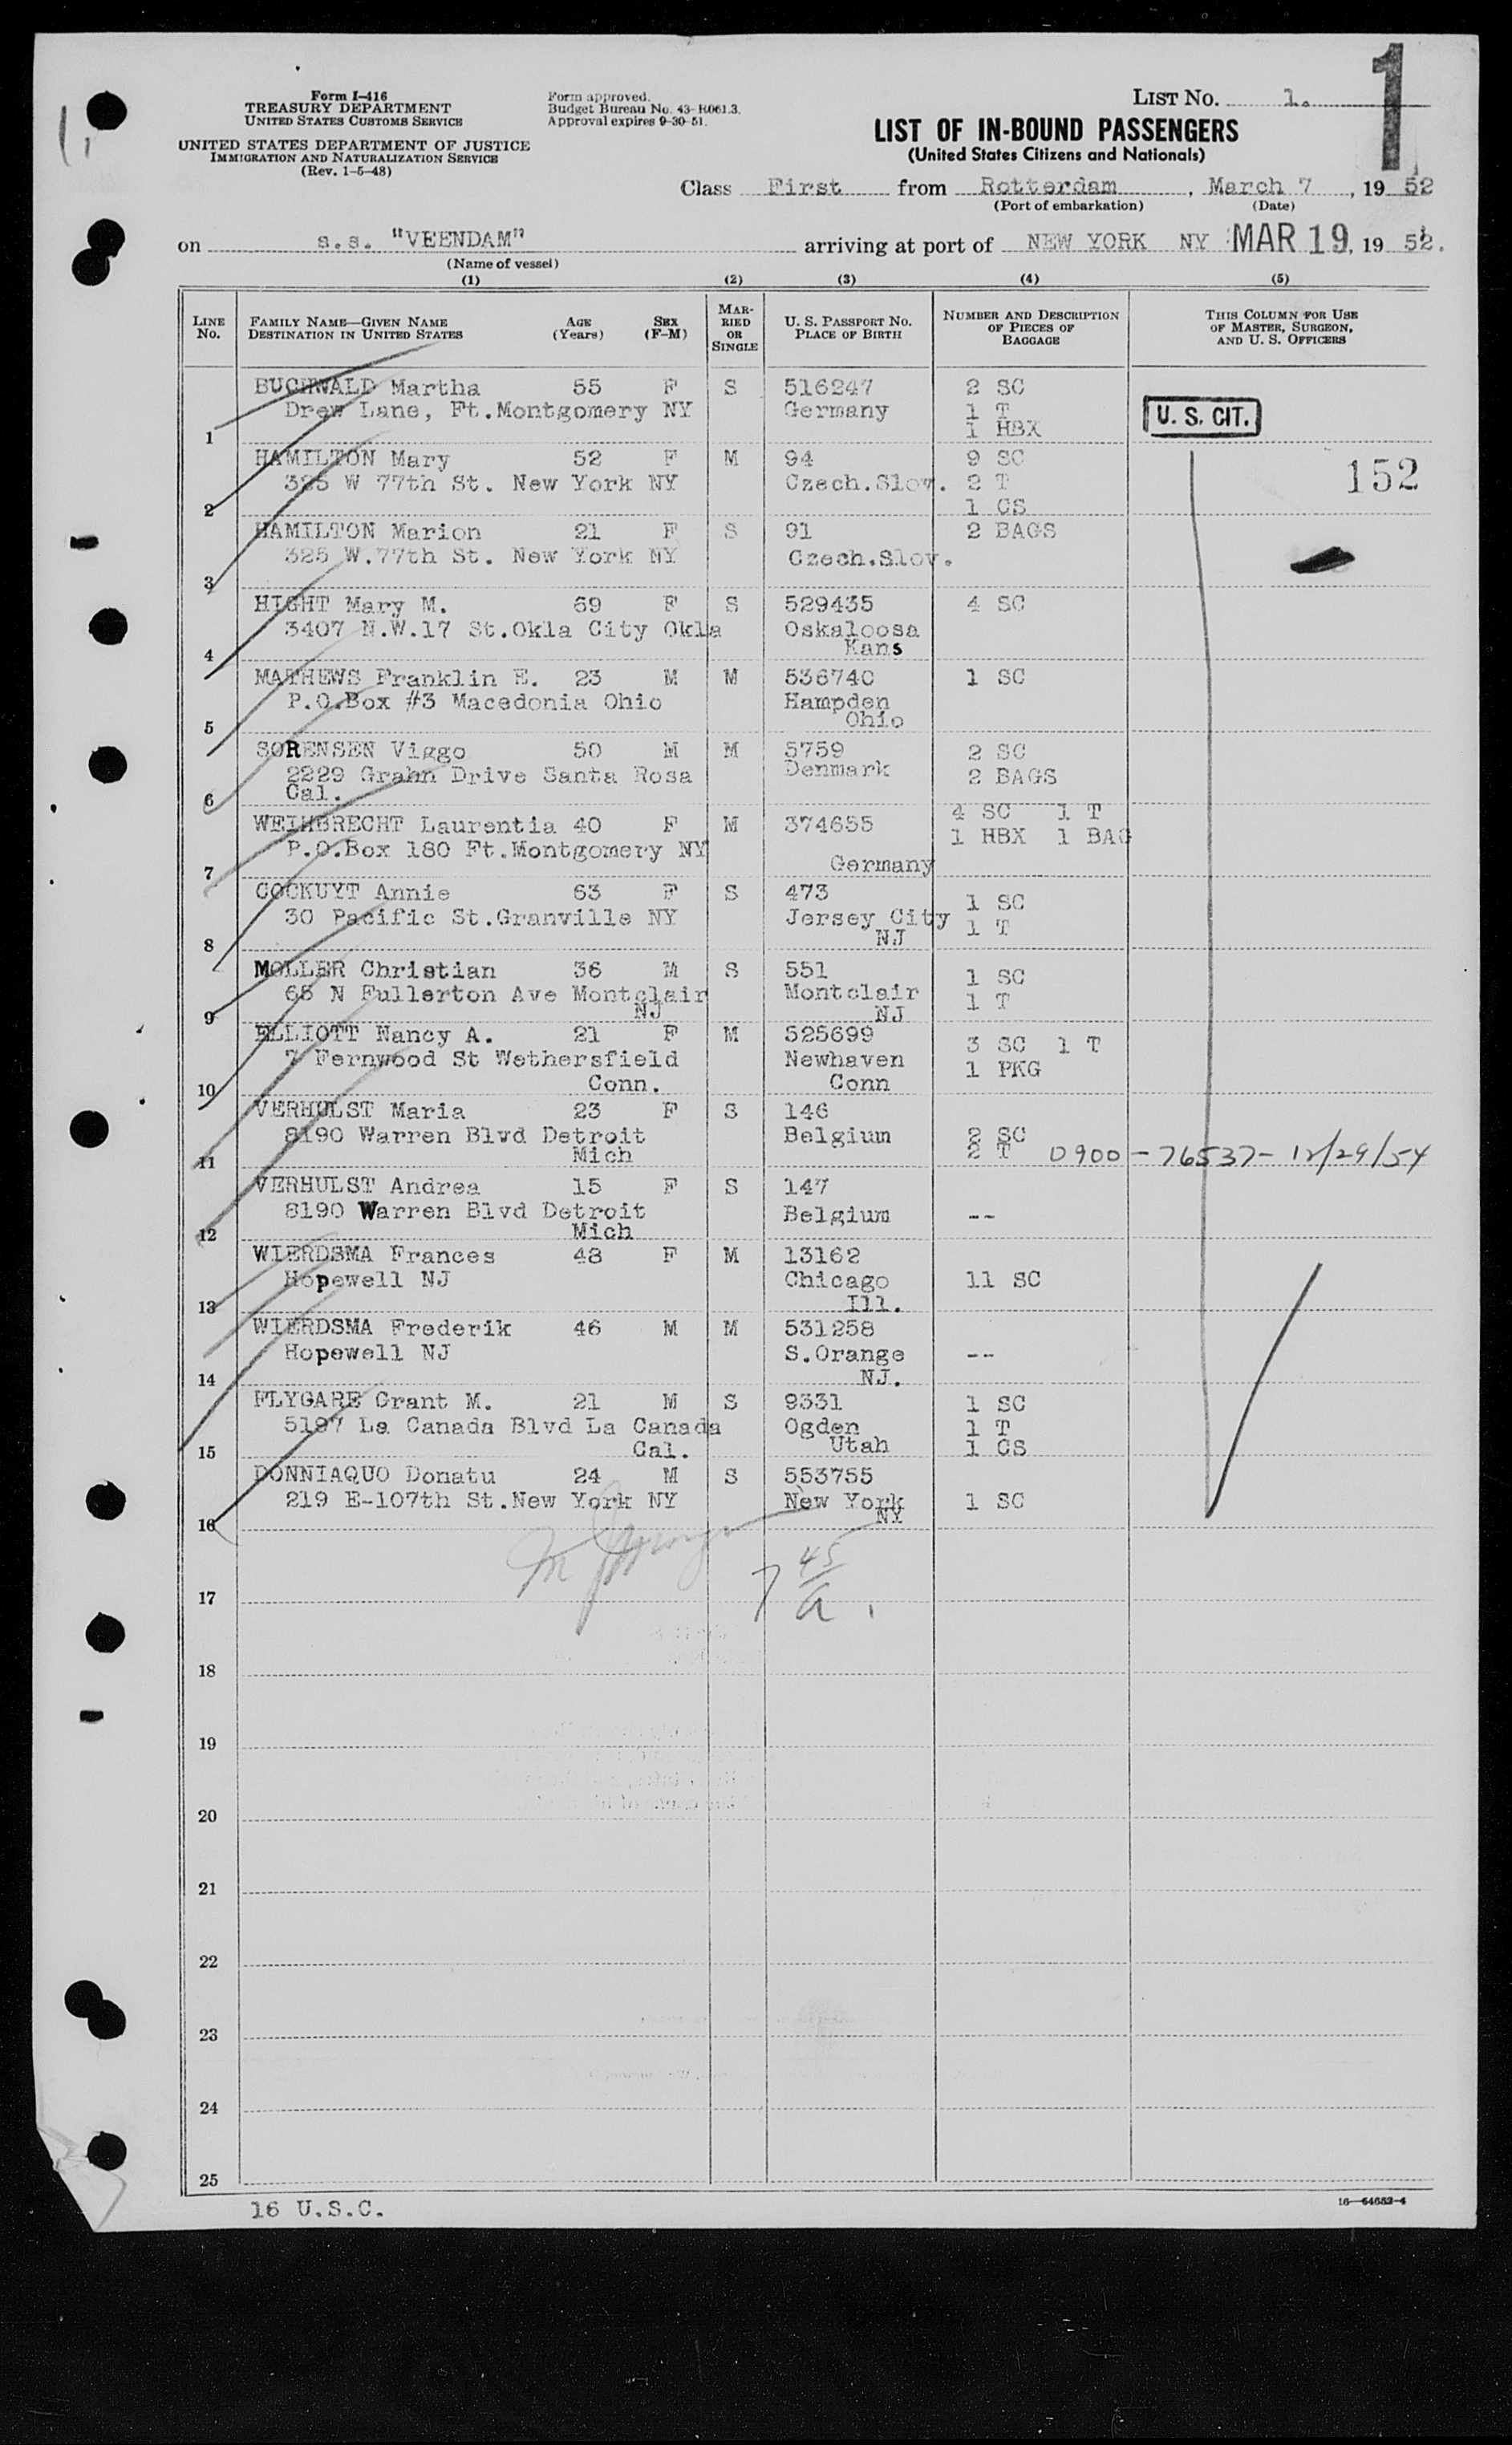 1
Form I-416
TREASURY DEPARTMENT
UNITED STATES CUSTOMS SERVICE
UNITED STATES DEPARTMENT OF JUSTICE
IMMIGRATION AND NATURALIZATION SERVICE
(Rev. 1-5-48)
Form approved.
Budget Bureau No. 43-R061.3.
Approval expires 9-30-51.
LIST NO. 1.
LIST OF IN-BOUND PASSENGERS
(United States Citizens and Nationals)
Class First from Rotterdam, March 7, 1952
(Port of embarkation) (Date)
on s.s. "VEENDAM" arriving at port of NEW YORK NY MAR 19, 1952.
(Name of vessel)
(1) (2) (3) (4) (5)
LINE NO. FAMILY NAME—GIVEN NAME DESTINATION IN UNITED STATES AGE (Years) SEX (F-M) MARRIED OR SINGLE U. S. PASSPORT NO. PLACE OF BIRTH NUMBER AND DESCRIPTION OF PIECES OF BAGGAGE THIS COLUMN FOR USE OF MASTER, SURGEON, AND U. S. OFFICERS
BUCHWALD Martha 55 F S 516247 2 SC
Drew Lane, Ft.Montgomery NY Germany 1 T
1 1 HBX U. S. CIT.
HAMILTON Mary 52 F M 94 9 SC
325 W 77th St. New York NY Czech.Slov. 2 T 152
2 1 CS
HAMILTON Marion 21 F S 91 2 BAGS
325 W.77th St. New York NY Czech.Slov.
3
HIGHT Mary M. 69 F S 529435 4 SC
3407 N.W.17 St.Okla City Okla Oskaloosa
4 Kans
MATHEWS Franklin E. 23 M M 536740 1 SC
P.O.Box #3 Macedonia Ohio Hampden
5 Ohio
SORENSEN Viggo 50 M M 5759 2 SC
2229 Grahn Drive Santa Rosa Denmark 2 BAGS
6 Cal.
4 SC 1 T
WEIHBRECHT Laurentia 40 F M 374655 1 HBX 1 BAG
P.O.Box 180 Ft.Montgomery NY
7 Germany
COCKUYT Annie 63 F S 473 1 SC
30 Pacific St.Granville NY Jersey City 1 T
8 NJ
MOLLER Christian 36 M S 551 1 SC
65 N Fullerton Ave Montclair Montclair 1 T
9 NJ NJ
ELLIOTT Nancy A. 21 F M 525699 3 SC 1 T
7 Fernwood St Wethersfield Newhaven 1 PKG
10 Conn. Conn
VERHULST Maria 23 F S 146
8190 Warren Blvd Detroit Belgium 2 SC
11 Mich 2 T 0900-76537-12/29/54
VERHULST Andrea 15 F S 147
8190 Warren Blvd Detroit Belgium --
12 Mich
WIERDSMA Frances 48 F M 13162
Hopewell NJ Chicago 11 SC
13 Ill.
WIERDSMA Frederik 46 M M 531258
Hopewell NJ S.Orange --
14 NJ.
FLYGARE Grant M. 21 M S 9331 1 SC
5197 La Canada Blvd La Canada Ogden 1 T
15 Cal. Utah 1 CS
DONNIAQUO Donatu 24 M S 553755
219 E-107th St.New York NY New York 1 SC
16 NY
7 45/a.
17
18
19
20
21
22
23
24
25
16 U.S.C.
16—64652-4